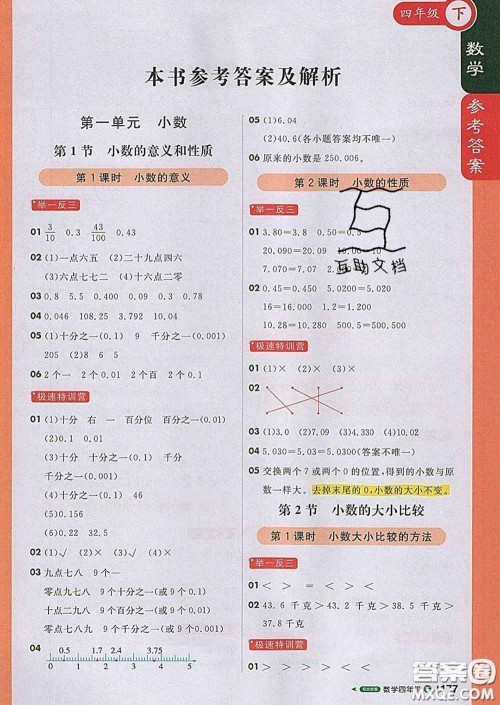 四年级 下
数学
参考答案
本书参考答案及解析
第一单元 小数
第1节 小数的意义和性质
第1课时 小数的意义
举一反三
01 3/10 0.3 43/100 0.43
02 (1)一点六五 (2)二十九点四六
(3)六点六七二 (4)十六点二零
03 0.8 5.5 0.400 0.39 0.751
04 0.046 108.25 3.94 10.205
05 (1)十分之一(0.1) 9 千分之一(0.001)
205 (2)8 6 5
06 2个一 2个0.1 2个0.01
极速特训营
01 (1)十分 右 一 百分位 百分之一(0.01)
(2)0.1 0.01 0.001
(3)十分之一 百分之一 千分
千分之一(0.001)
(4)0.47 0.53
(5)0.15
(6)50.502
02 (1)√ (2)√ (3)× (4)×
03 九点七八 9个一
零点九七八 9个十分之一(或9个0.1)
十点二九八 9个百分之一(或9个0.01)
零点七八九 9个千分之一(或9个0.001)
04
0 1 2 3 4 5
05 (1)6.04
(2)40.6(各小题答案均不唯一)
06 原来的小数是250.006。
第2课时 小数的性质
举一反三
01 3.80=3.8 0.50=0.5
20.090=20.09 10.00=10
7.070=7.07 2.080=2.08
02 0.45=0.450 5.0200=5.020
16=16.000 1.2=1.200
8.4=8.400 9.32=9.320
极速特训营
01 (1)× (2)× (3)× (4)×
02
03 (1)3.0 (2)7.09 (3)4.30 (4)10.02
04 5.030=5.03=5.0300(答案不唯一)
05 交换两个7或两个0的位置,得到的小数与原
数一样大。去掉末尾的0,小数的大小不变。
第2节 小数的大小比较
第1课时 小数大小比较的方法
举一反三
01 < < > = > <
02 43.6千克>43.2千克>38.5千克
>37.8千克
极速特训营
01 > > > > > <
互助文档
答案圈
数学四年
177